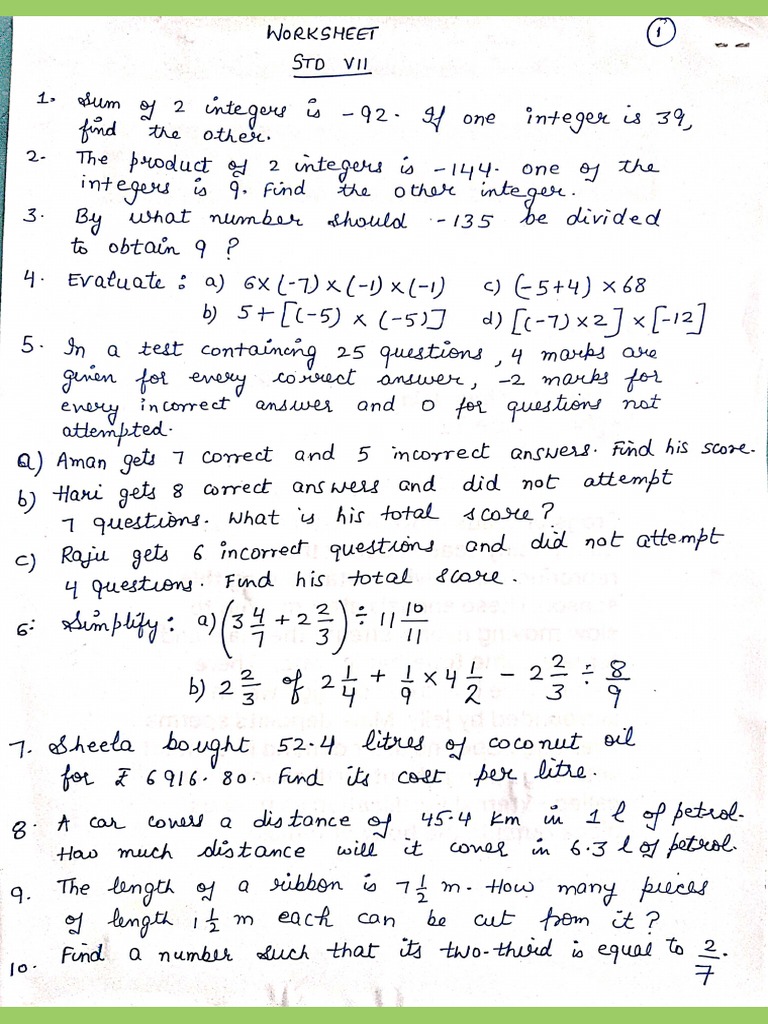 WORKSHEET
1
STD VII
1. Sum of 2 integers is -92. If one integer is 39,
find the other.
2. The product of 2 integers is -144. one of the
integers is 9. Find the other integer.
3. By what number should -135 be divided
to obtain 9 ?
4. Evaluate : a) 6×(-7)×(-1)×(-1) c) (-5+4) ×68
b) 5+[(-5) × (-5)] d) [(-7)×2] × [-12]
5. In a test containing 25 questions, 4 marks are
given for every correct answer, -2 marks for
every incorrect answer and 0 for questions not
attempted.
a) Aman gets 7 correct and 5 incorrect answers. Find his score.
b) Hari gets 8 correct answers and did not attempt
7 questions. What is his total score?
c) Raju gets 6 incorrect questions and did not attempt
4 questions. Find his total score.
6: Simplify: a) (3 4/7 + 2 2/3) ÷ 11 10/11
b) 2 2/3 of 2 1/4 + 1/9 × 4 1/2 - 2 2/3 ÷ 8/9
7. Sheela bought 52.4 litres of coconut oil
for ₹ 6916.80. Find its cost per litre.
8. A car covers a distance of 45.4 km in 1 l of petrol.
How much distance will it cover in 6.3 l of petrol.
9. The length of a ribbon is 7 1/2 m. How many pieces
of length 1 1/2 m each can be cut from it?
10. Find a number such that its two-third is equal to 2/7.